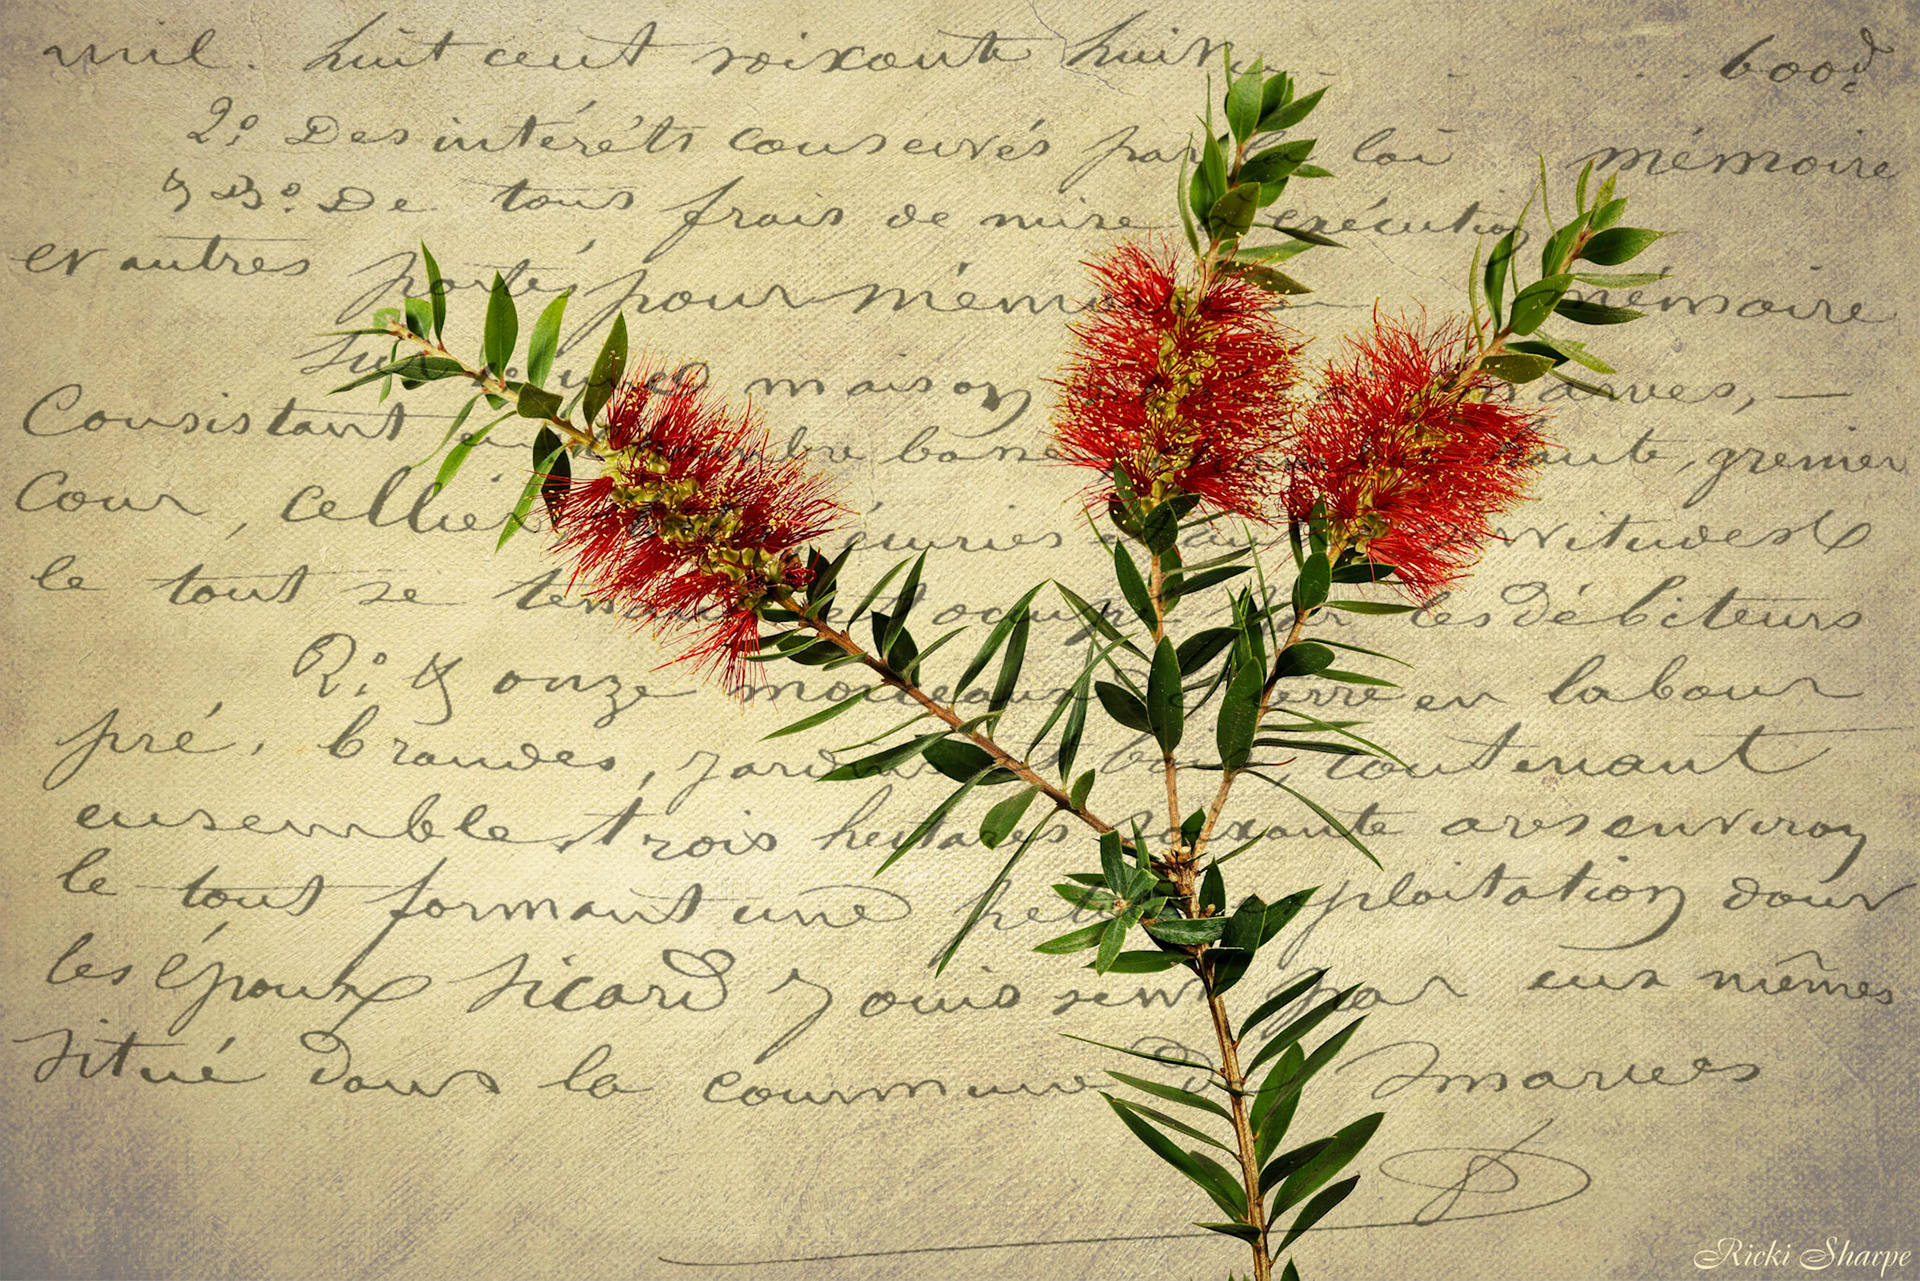 mil. huit cent soixante huit 600
2º Des intérêts conservés par la loi mémoire
& 3º. De tous frais de mise à exécution
et autres portés pour mémoire mémoire
Sur 1º une maison
Consistant en chambre basse, chambre haute, grenier
Cour, cellier, écuries servitudes &
le tout se tenant et occupé par les débiteurs
& 2º. & onze morceaux de terre en labour
pré, brandes, jardin, bois, contenant
ensemble trois hectares soixante ares environ
le tout formant une petite exploitation dont
les époux Sicard jouissent par eux mêmes
situé dans la commune de
Ricki Sharpe